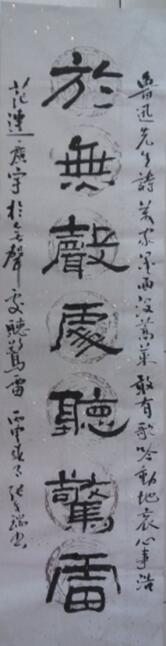 魯迅先生詩萬家墨面沒蒿萊敢有歌吟動地哀心事浩
於無聲處聽驚雷
茫連廣宇於無聲處聽驚雷